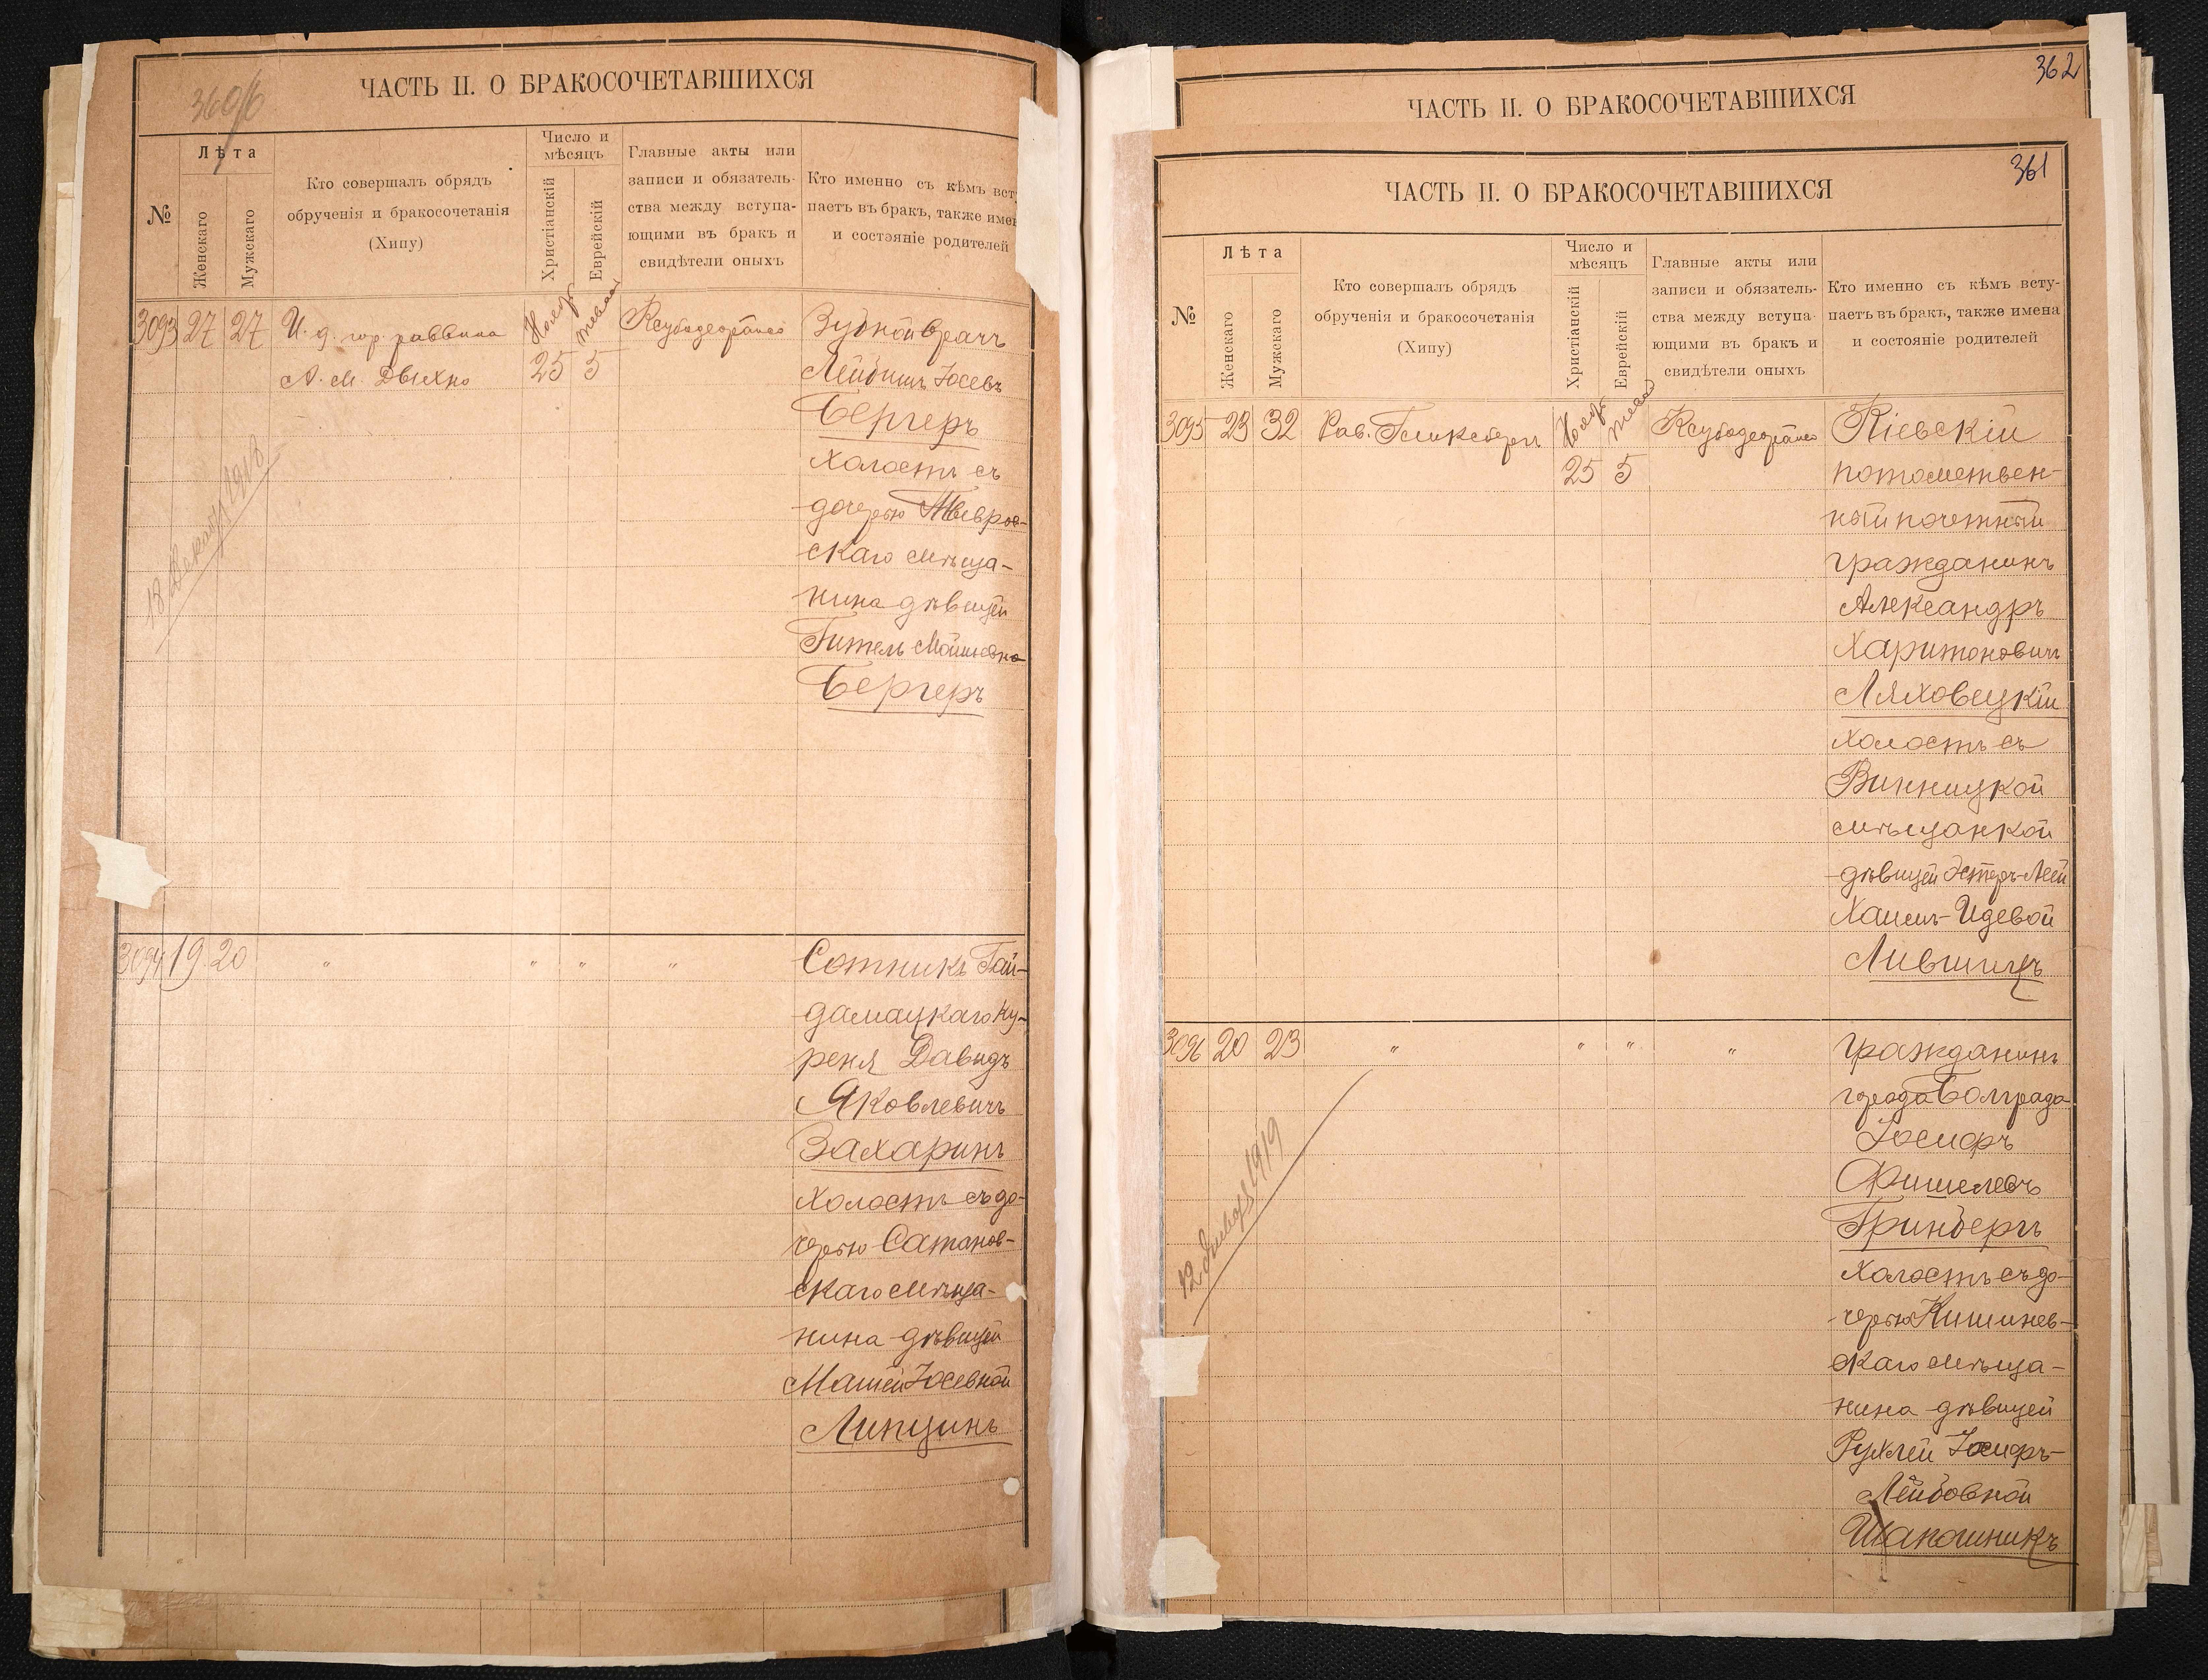 360/б
ЧАСТЬ II. О БРАКОСОЧЕТАВШИХСЯ
№
Лѣта
Женскаго
Мужскаго
Кто совершалъ обрядъ
обрученія и бракосочетанія
(Хипу)
Число и
мѣсяцъ
Христіанскій
Еврейскій
Главные акты или
записи и обязатель-
ства между вступа-
ющими въ бракъ и
свидѣтели оныхъ
Кто именно съ кѣмъ всту
паетъ въ бракъ, также имен
и состояніе родителей
3093 27 27
И. д. гор. раввина
А. М. Двихно
Нояб.
25
5
Зубной врачъ
Лейбишъ Іосевъ
Бергеръ
холостъ съ
дочерью
скаго мѣща-
нина дѣвицей
Гитель
Бергеръ
13 Декабр 1918
3094 19 20
" " " "
Сотникъ Гай-
дамацкаго Ку-
реня Давидъ
Яковлевичъ
Захаринъ
холостъ съ до-
черью Сатанов-
скаго мѣща-
нина дѣвицей
Машей Іосевной
Липцинъ
362
ЧАСТЬ II. О БРАКОСОЧЕТАВШИХСЯ
361
ЧАСТЬ II. О БРАКОСОЧЕТАВШИХСЯ
№
Лѣта
Женскаго
Мужскаго
Кто совершалъ обрядъ
обрученія и бракосочетанія
(Хипу)
Число и
мѣсяцъ
Христіанскій
Еврейскій
Главные акты или
записи и обязатель-
ства между вступа-
ющими въ бракъ и
свидѣтели оныхъ
Кто именно съ кѣмъ всту-
паетъ въ бракъ, также имена
и состояніе родителей
3095 23 32
Рав. Гликсберг
Нояб.
25
5
Кіевскій
потомствен-
ный почетный
гражданинъ
Александръ
Харитоновичъ
Ляховецкій
холостъ съ
Винницкой
мѣщанкой
дѣвицей Эстеръ-Леей
Хаимъ-Идевой
Лившицъ
3096 20 23
" " " "
гражданинъ
города Болграда
Іосифъ
Фишелевъ
Гринбергъ
холостъ съ до-
черью Кишинев-
скаго мѣща-
нина дѣвицей
Рухлей Іосифъ-
Лейбовной
Шапошникъ
12 Января 1919